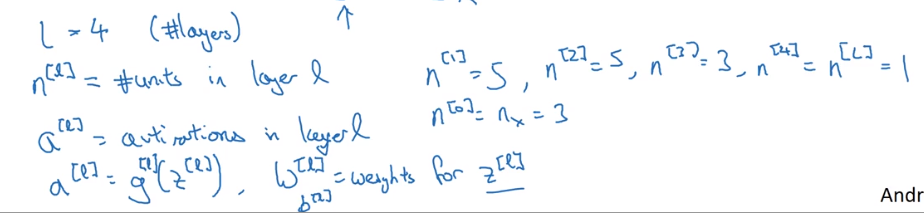 L = 4 (#layers)
n^[l] = #units in layer l
n^[1] = 5, n^[2] = 5, n^[3] = 3, n^[4] = n^[L] = 1
n^[0] = n_x = 3
a^[l] = activations in layer l
a^[l] = g^[l](z^[l]), W^[l] = weights for z^[l]
b^[l]
Andr